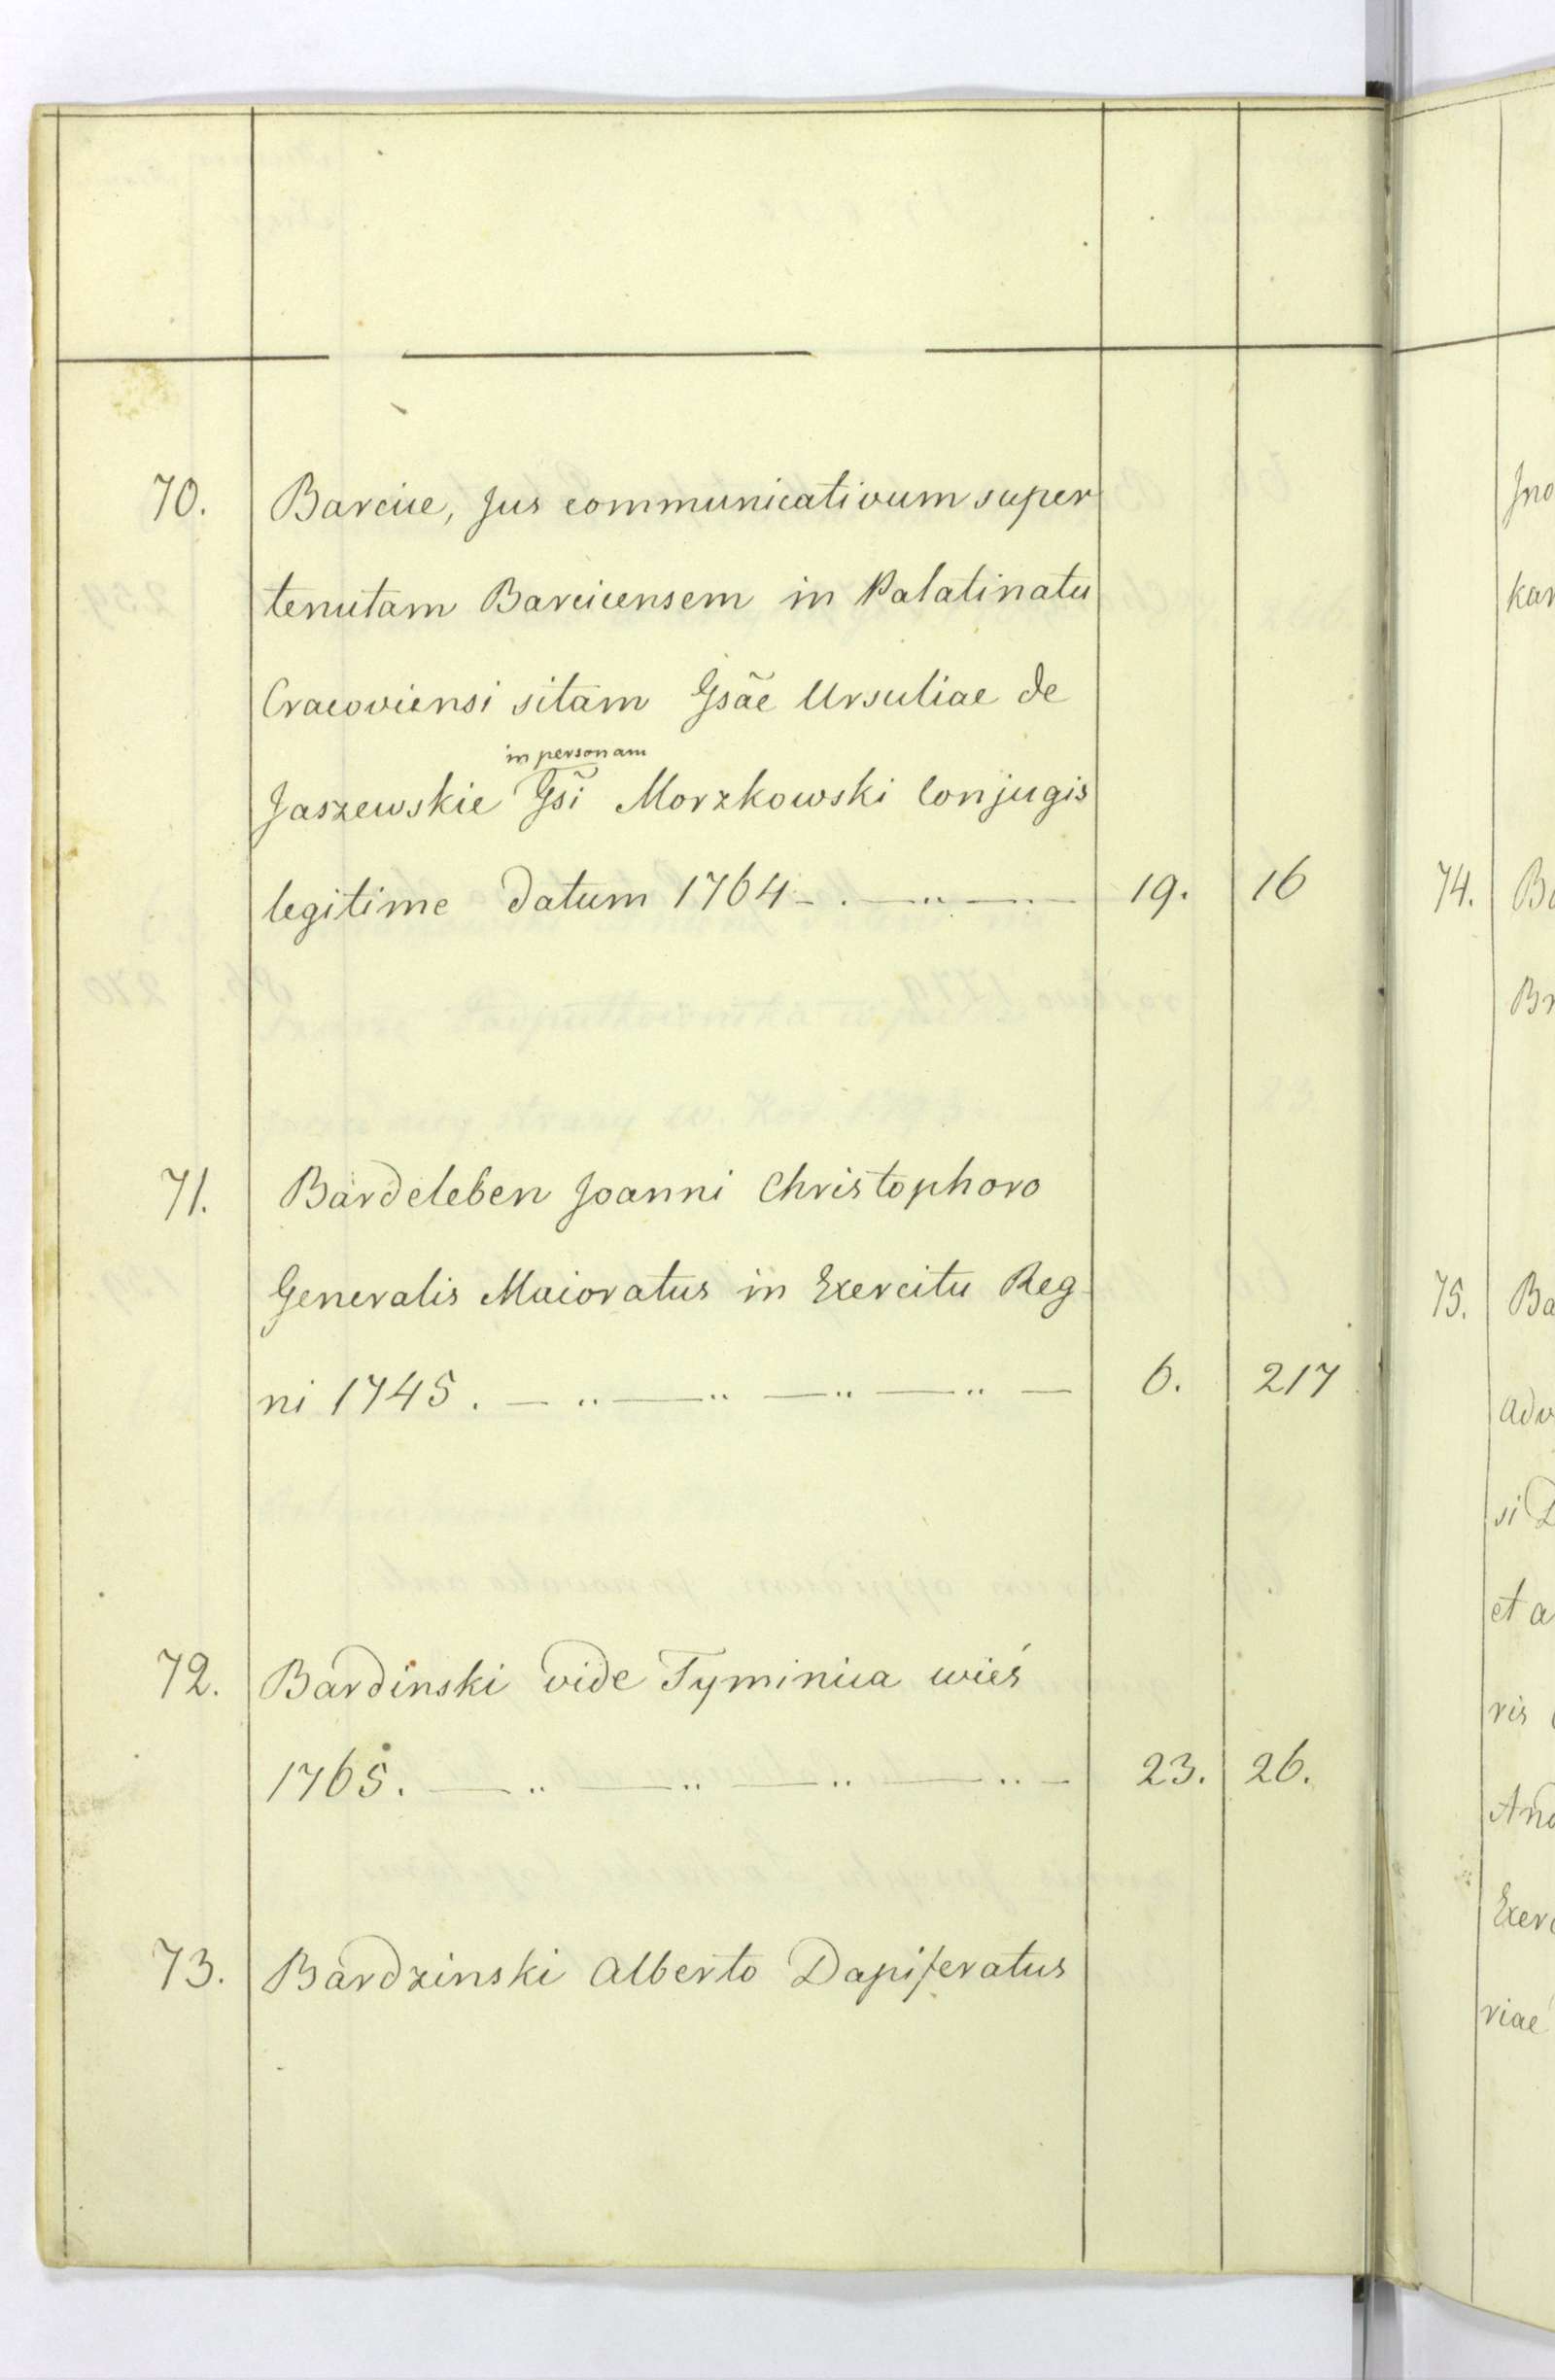 70. Barcice, Jus communicativum super
tenutam Barcicensem in Palatinatu
Cracoviensi sitam Gsãe Ursuliae de
in personam
Jaszewskie Gsĩ Morzkowski Conjugis
legitime datum 1764 19. 16
71. Bardeleben Joanni Christophoro
Generalis Maioratus in Exercitu Reg-
ni 1745. 6. 217
72. Bardinski vide Tyminica wieś
1765. 23. 26.
73. Bardzinski Alberto Dapiferatus
Jno
kar
74. Ba
Br
75. Ba
adv
si D
et a
ris
And
Exer
riae